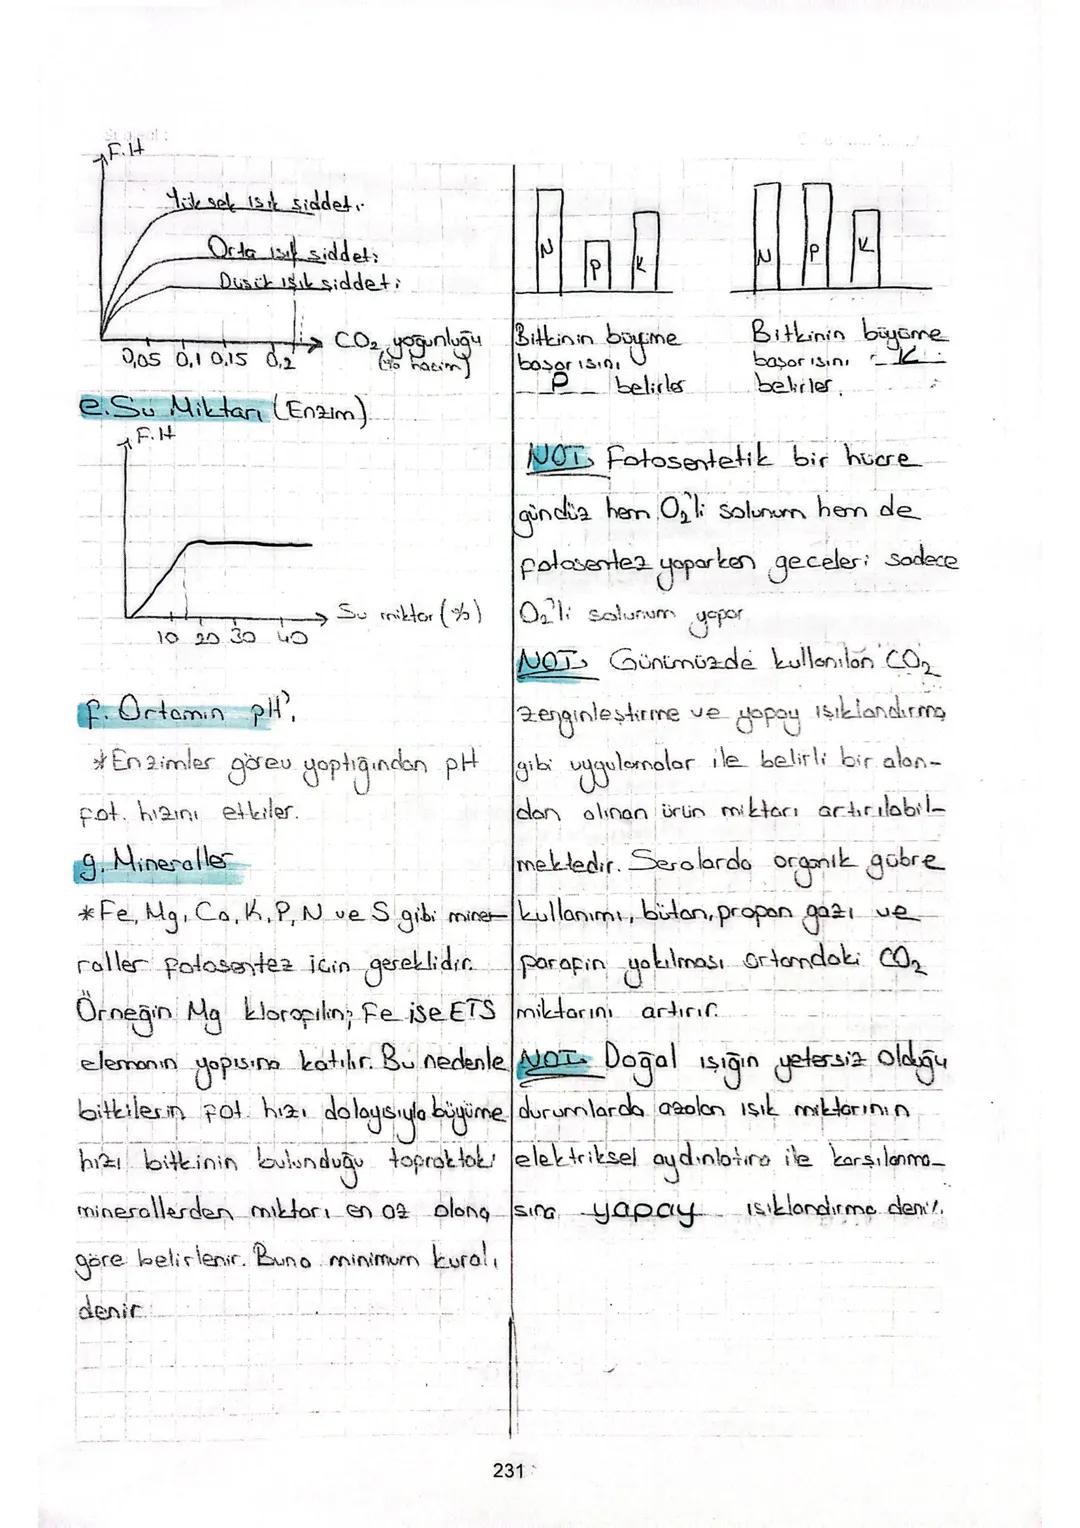 F.H
Yüksek ışık şiddeti
Orta ışık şiddeti
Düşük ışık şiddeti
CO₂ yoğunluğu
(% hacim)
0,05 0,1 0,15 0,2
e. Su Miktarı (Enzim)
F.H
Su miktar (%)
10 20 30 40
f. Ortamın pH'ı
*Enzimler görev yaptığından pH
fot. hızını etkiler.
g. Mineraller
*Fe, Mg, Ca, K, P, N ve S gibi mine-
raller fotosentez için gereklidir.
Örneğin Mg klorofilin; Fe ise ETS
elemanın yapısına katılır. Bu nedenle
bitkilerin fot. hızı dolayısıyla büyüme
hızı bitkinin bulunduğu topraktaki
minerallerden miktarı en az olana
göre belirlenir. Buna minimum kuralı
denir.
N P K
Bitkinin büyüme
başarısını
P belirler
N P K
Bitkinin büyüme
başarısını K
belirler.
NOT: Fotosentetik bir hücre
gündüz hem O₂'li solunum hem de
fotosentez yaparken geceleri sadece
O₂'li solunum yapar
NOT: Günümüzde kullanılan CO₂
zenginleştirme ve yapay ışıklandırma
gibi uygulamalar ile belirli bir alan-
dan alınan ürün miktarı artırılabil-
mektedir. Seralarda organik gübre
kullanımı, bütan, propan gazı ve
parafin yakılması ortamdaki CO₂
miktarını artırır.
NOT: Doğal ışığın yetersiz olduğu
durumlarda azalan ışık miktarının
elektriksel aydınlatma ile karşılanma-
sına yapay ışıklandırma denir.
231